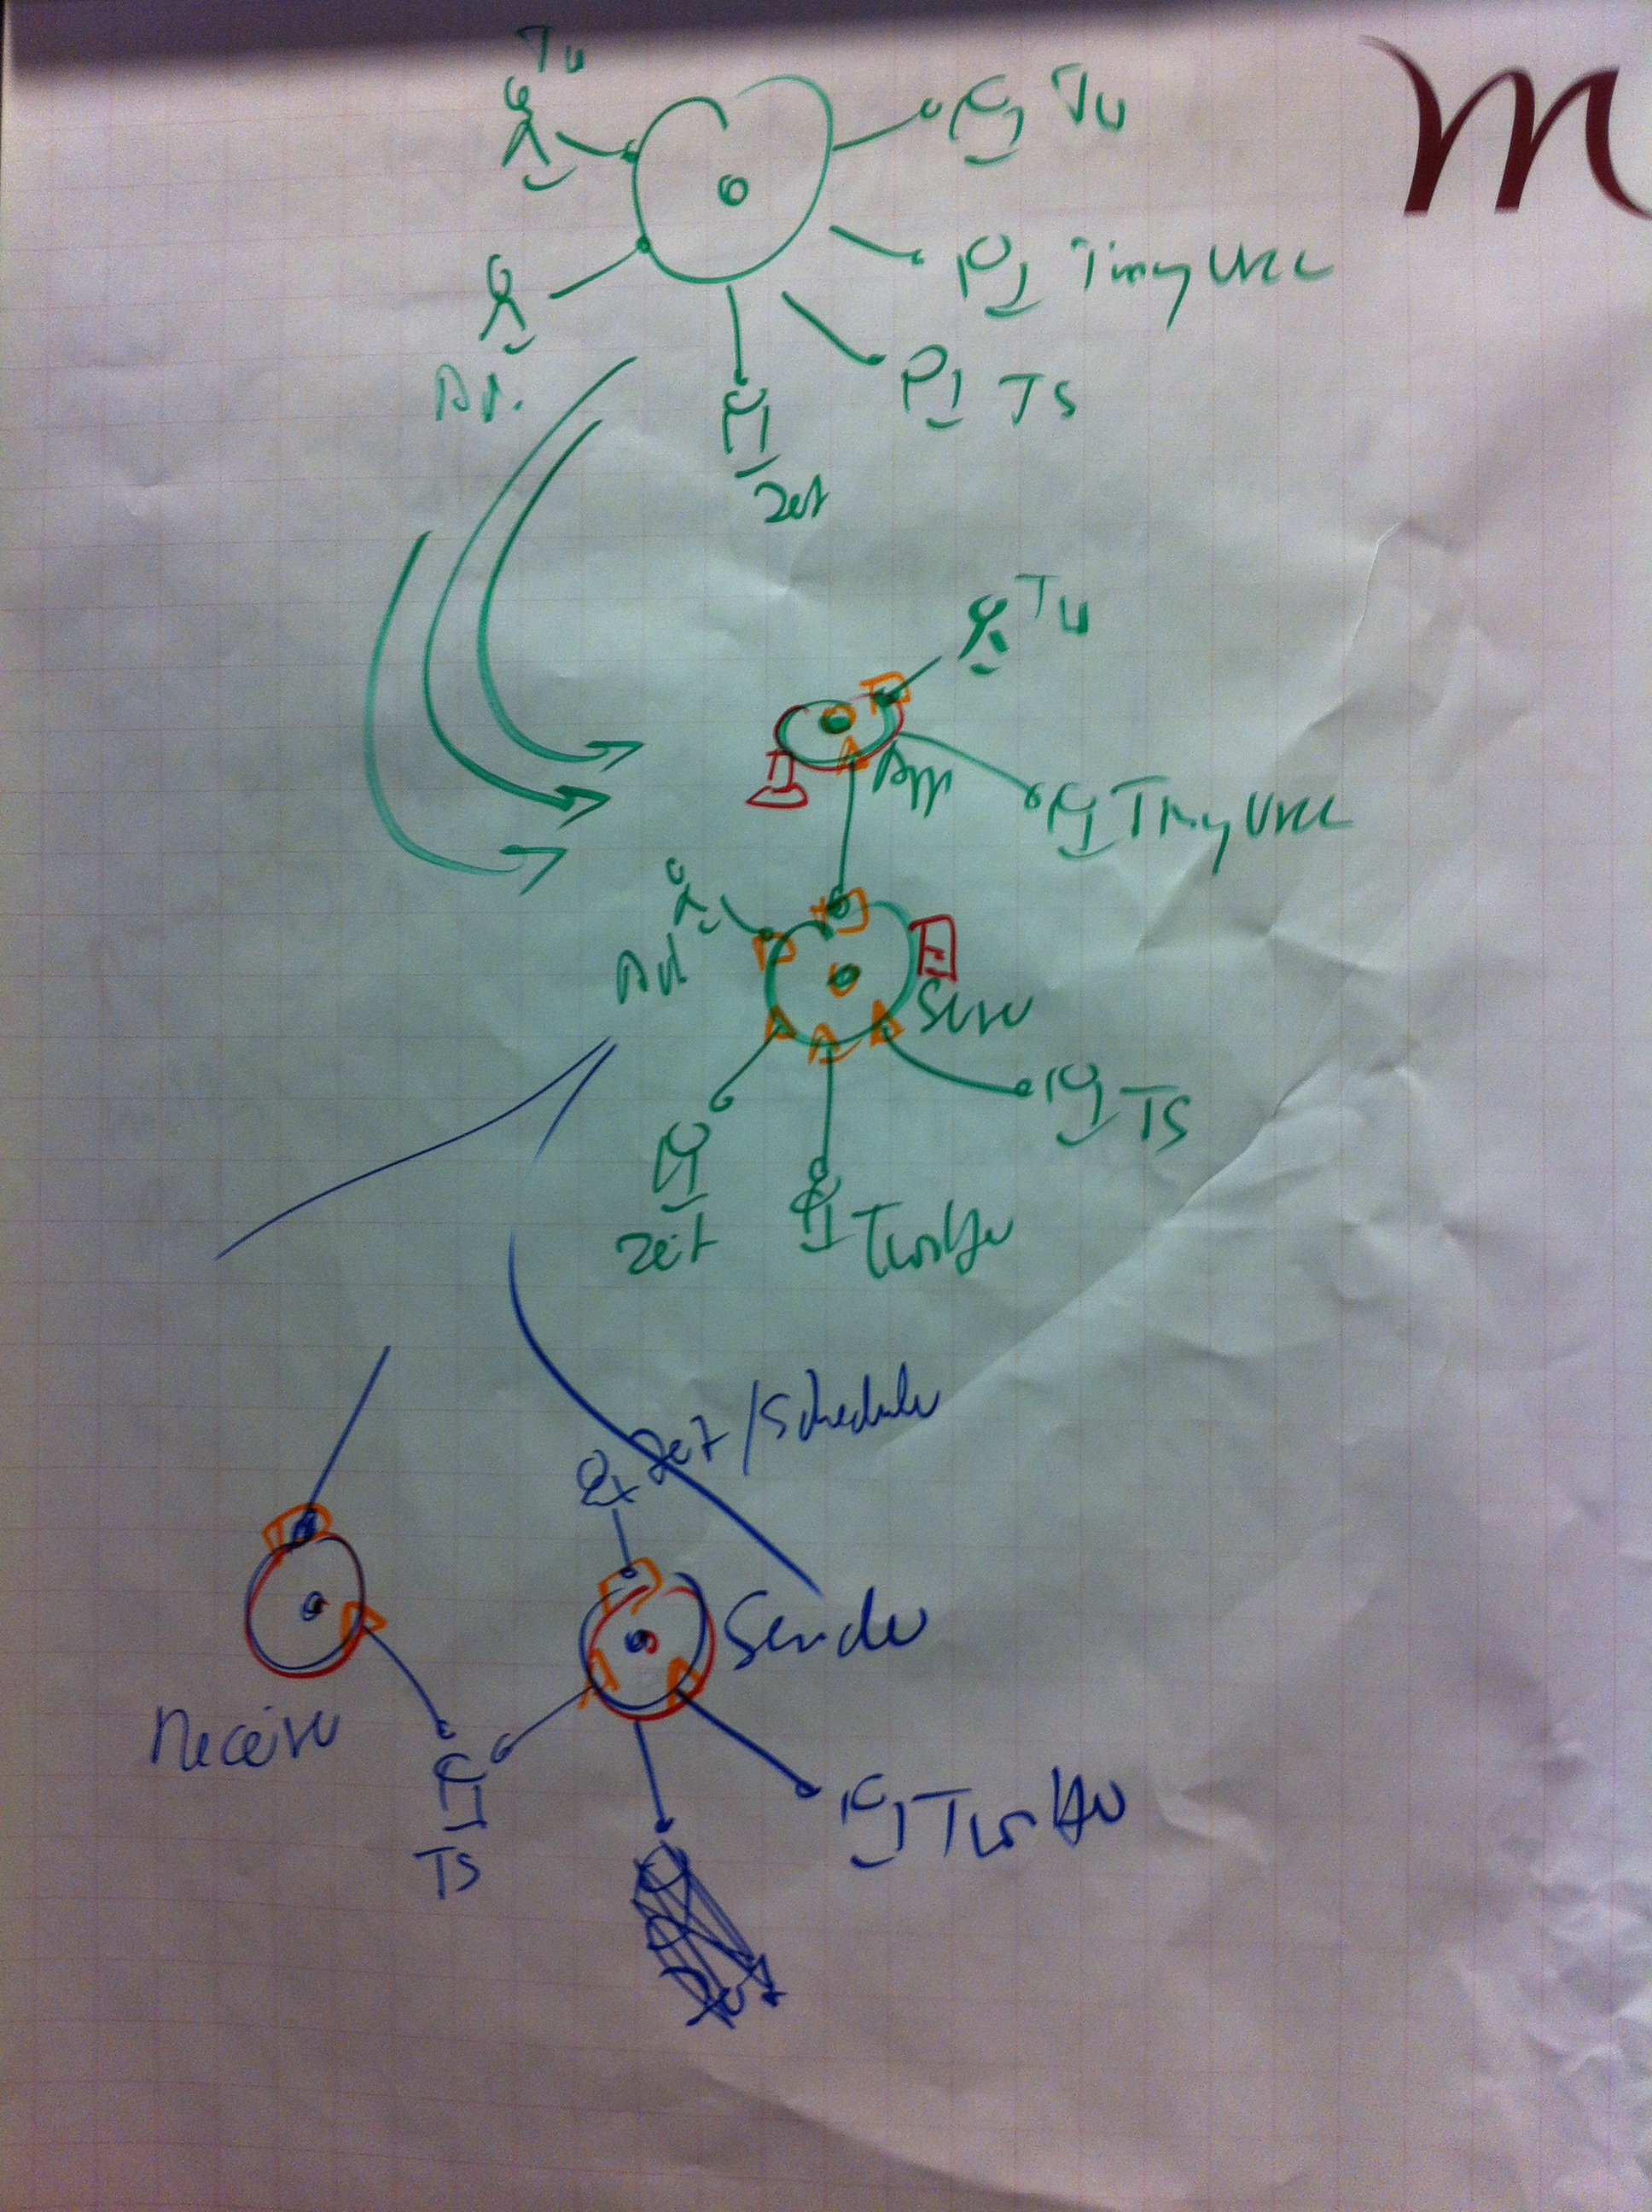 m
Tu
Tu
TinyURL
TS
Zeit
Tu
App
TinyURL
Ad.
Server
TS
Zeit
Twitter
Zeit/Scheduler
Sender
Receiver
TS
Twitter